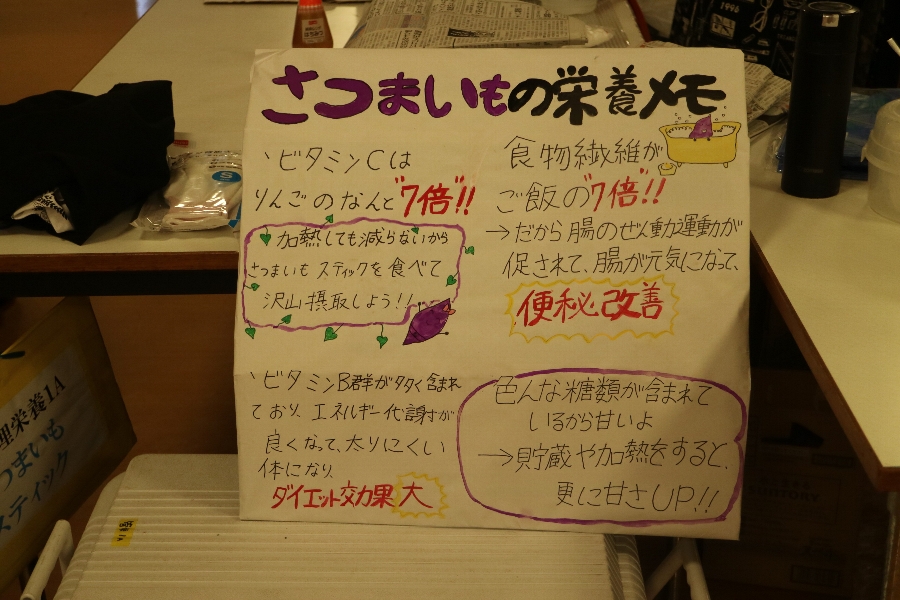 さつまいもの栄養メモ
、ビタミンCは
りんごのなんと"7倍"!!
加熱しても減らないから
さつまいもスティックを食べて
沢山摂取しよう!!
食物繊維が
ご飯の"7倍"!!
→だから腸のぜん動運動が
促されて、腸が元気になって、
便秘改善
、ビタミンB群が多く含まれ
ており、エネルギー代謝が
良くなって、太りにくい
体になり、
ダイエット効果大
色んな糖類が含まれて
いるから甘いよ
→貯蔵や加熱をすると、
更に甘さUP!!
理栄養1A
つまいも
スティック
1996
S